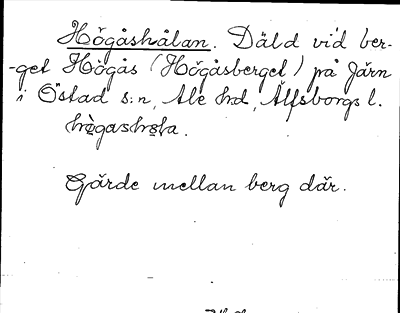 Högåshålan. Däld vid ber-
-get Högås (Högåsberget) på Järn
i Östad s:n, Ale hd, Älfsborgs l.
Gärde mellan berg där.